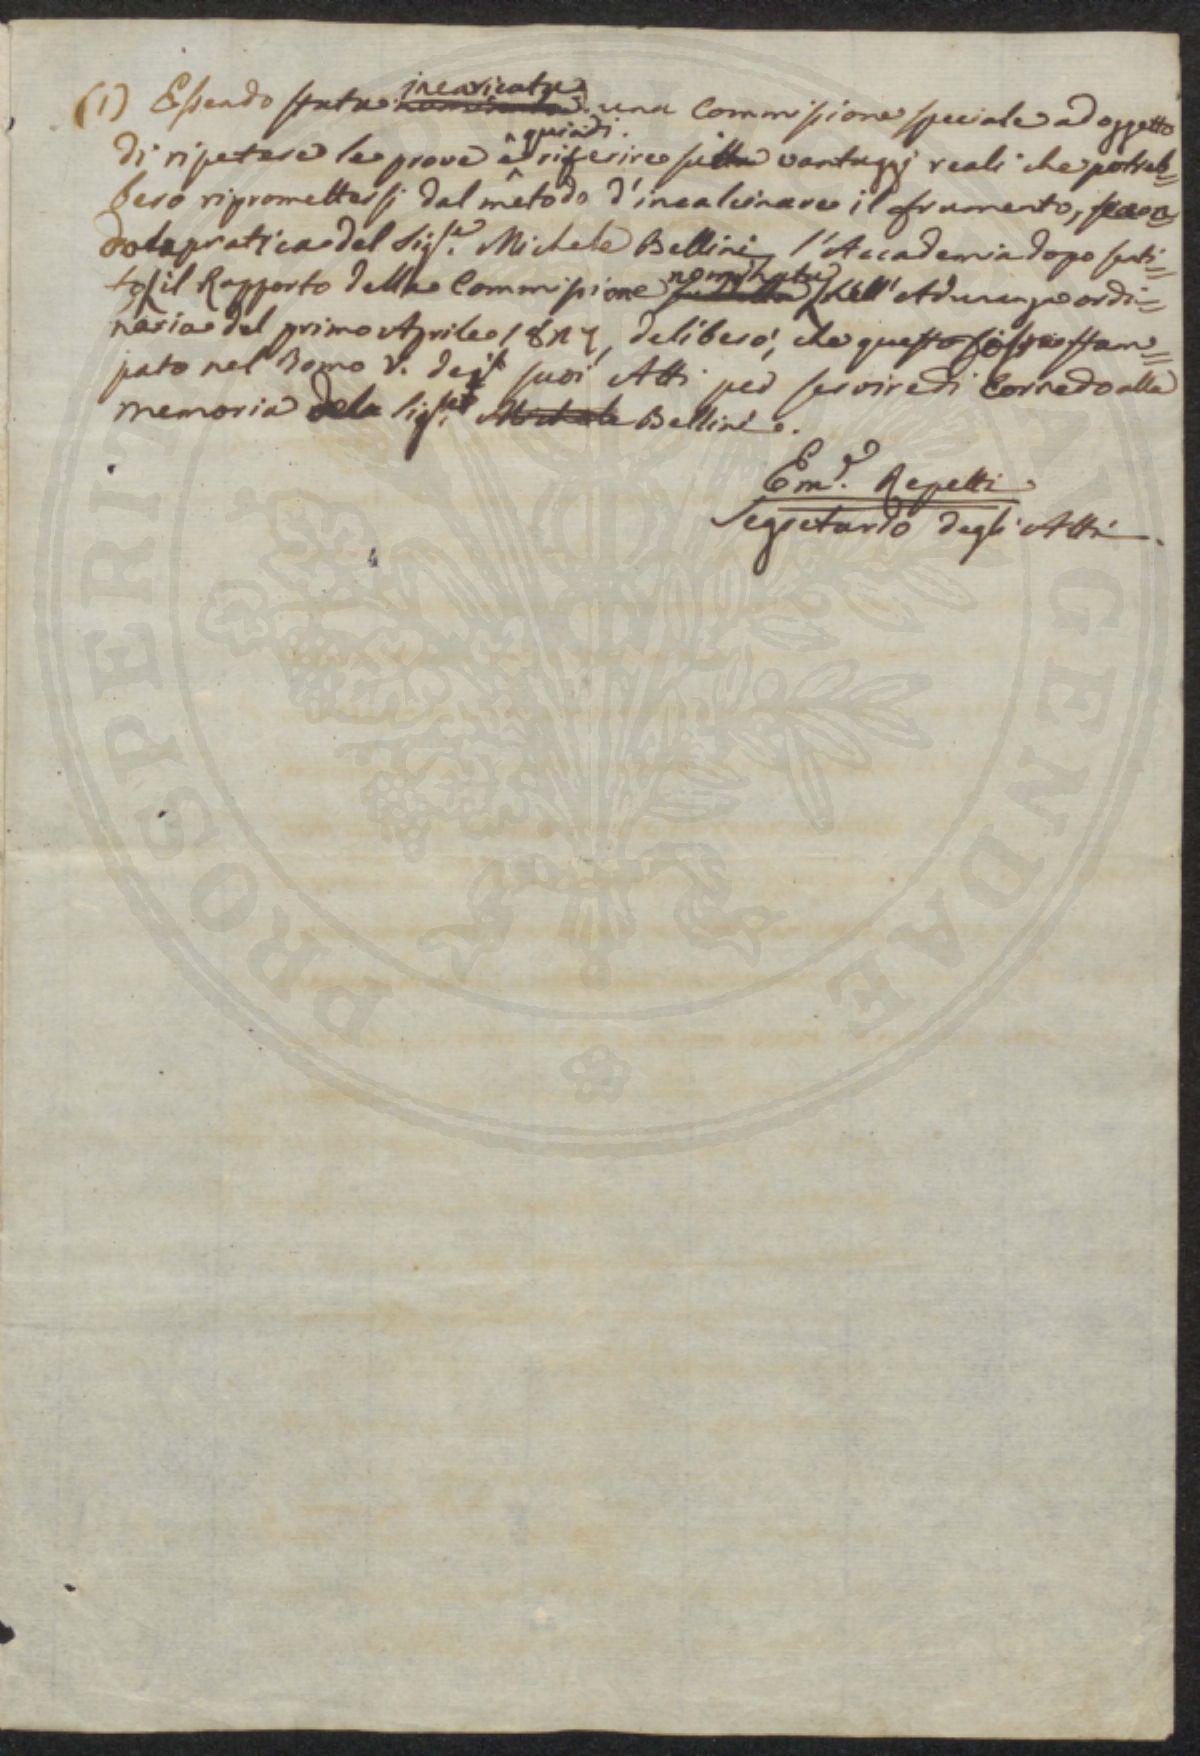 (1) Essendo stata incaricata una Commissione speciale ad oggetto
di ripetere le prove e quindi riferire vantaggj reali che potreb=
bero ripromettersi dal metodo d'incalcinare il frumento, secon
do la pratica del Sig.re Michele Bellini, l'Accademia dopo senti=
to il Rapporto della Commissione nominata nell'Adunanza ordi=
naria del primo Aprile 1827, deliberò, che questo fosse stam=
pato nel Tomo V. degli suoi Atti per servire di Corredo alla
memoria del Sig.re Michele Bellini.
Em.e Repetti
Segretario degli Atti.
PROSPERITATI AUGENDAE